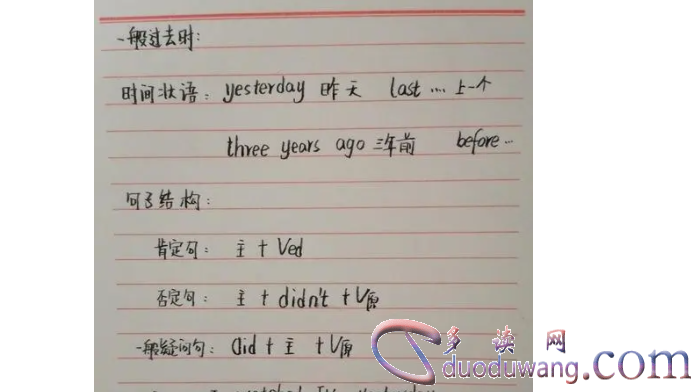 一般过去时:
时间状语: yesterday 昨天 last .... 上一个
three years ago 三年前 before ...
句子结构:
肯定句: 主 + Ved
否定句: 主 + didn't + V原
一般疑问句: did + 主 + V原
多读网
duoduwang.com